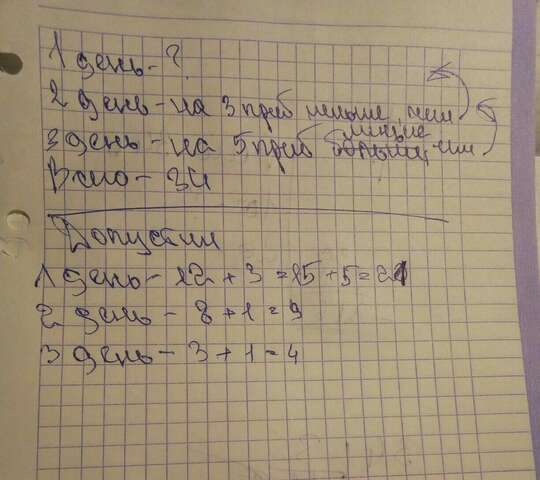 1 день - ?
2 день - на 3 приб меньше, чем
3 день - на 5 приб меньше чем
Всего - 34
Допустим
1 день - 12 + 3 = 15 + 5 = 21
2 день - 8 + 1 = 9
3 день - 3 + 1 = 4